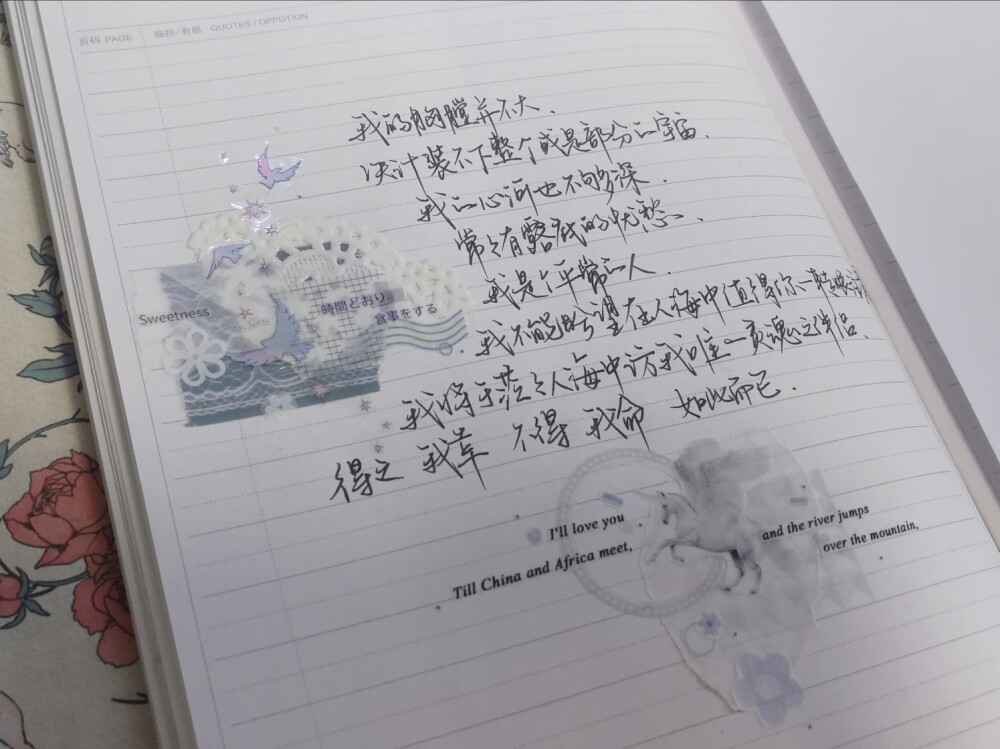 页码 PAGE 摘抄/有感 QUOTES / OPPOTION
我的胸膛并不大.
决计装不下整个或是部分的宇宙.
我的心河也不够深.
常常有露我的忧愁.
我是个平常的人.
我不能盼望在人海中值得你一转眼
我将于茫茫人海中访我唯一灵魂之伴侣.
得之 我幸 不得 我命 如此而已.
Sweetness
時間どおり
食事をする
I'll love you
Till China and Africa meet,
and the river jumps
over the mountain,